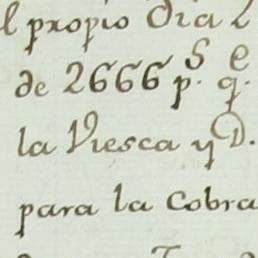 l propio dia 2
de 2666 p.s q.e
la Viesca y D.
para la Cobra